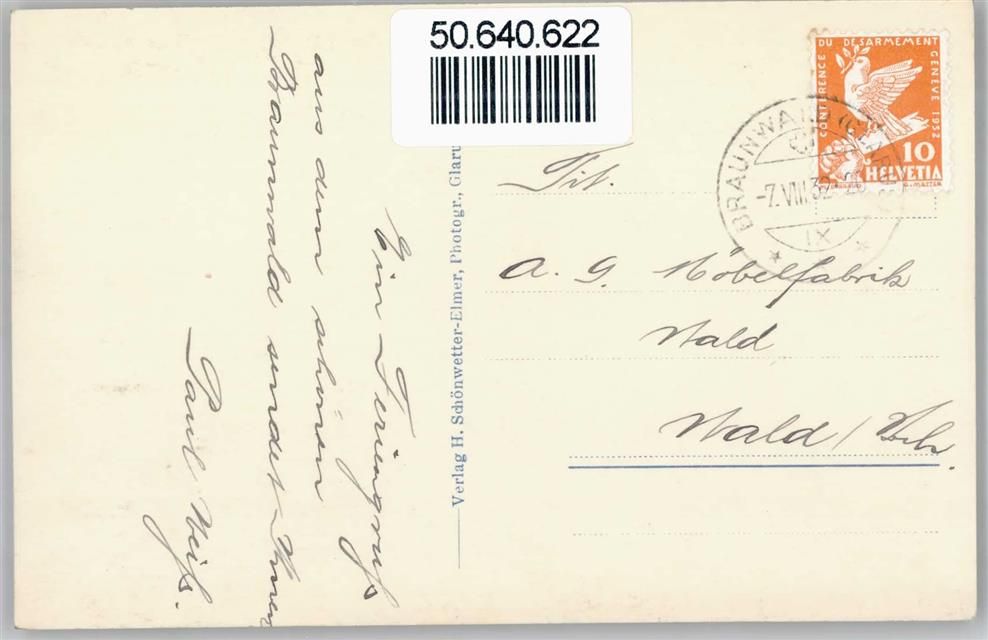 50.640.622
CONFERENCE DU DESARMEMENT GENÈVE 1932
10
HELVETIA
BRAUNWALD (GLARUS)
-7.VIII.32
IX
Tit.
A. G. Möbelfabrik
Wald
Wald / Zch.
Verlag H. Schönwetter-Elmer, Photogr., Glarus
Ein Feriengruss
aus dem schönen
Braunwald sendet Ihnen
Paul Weiss.